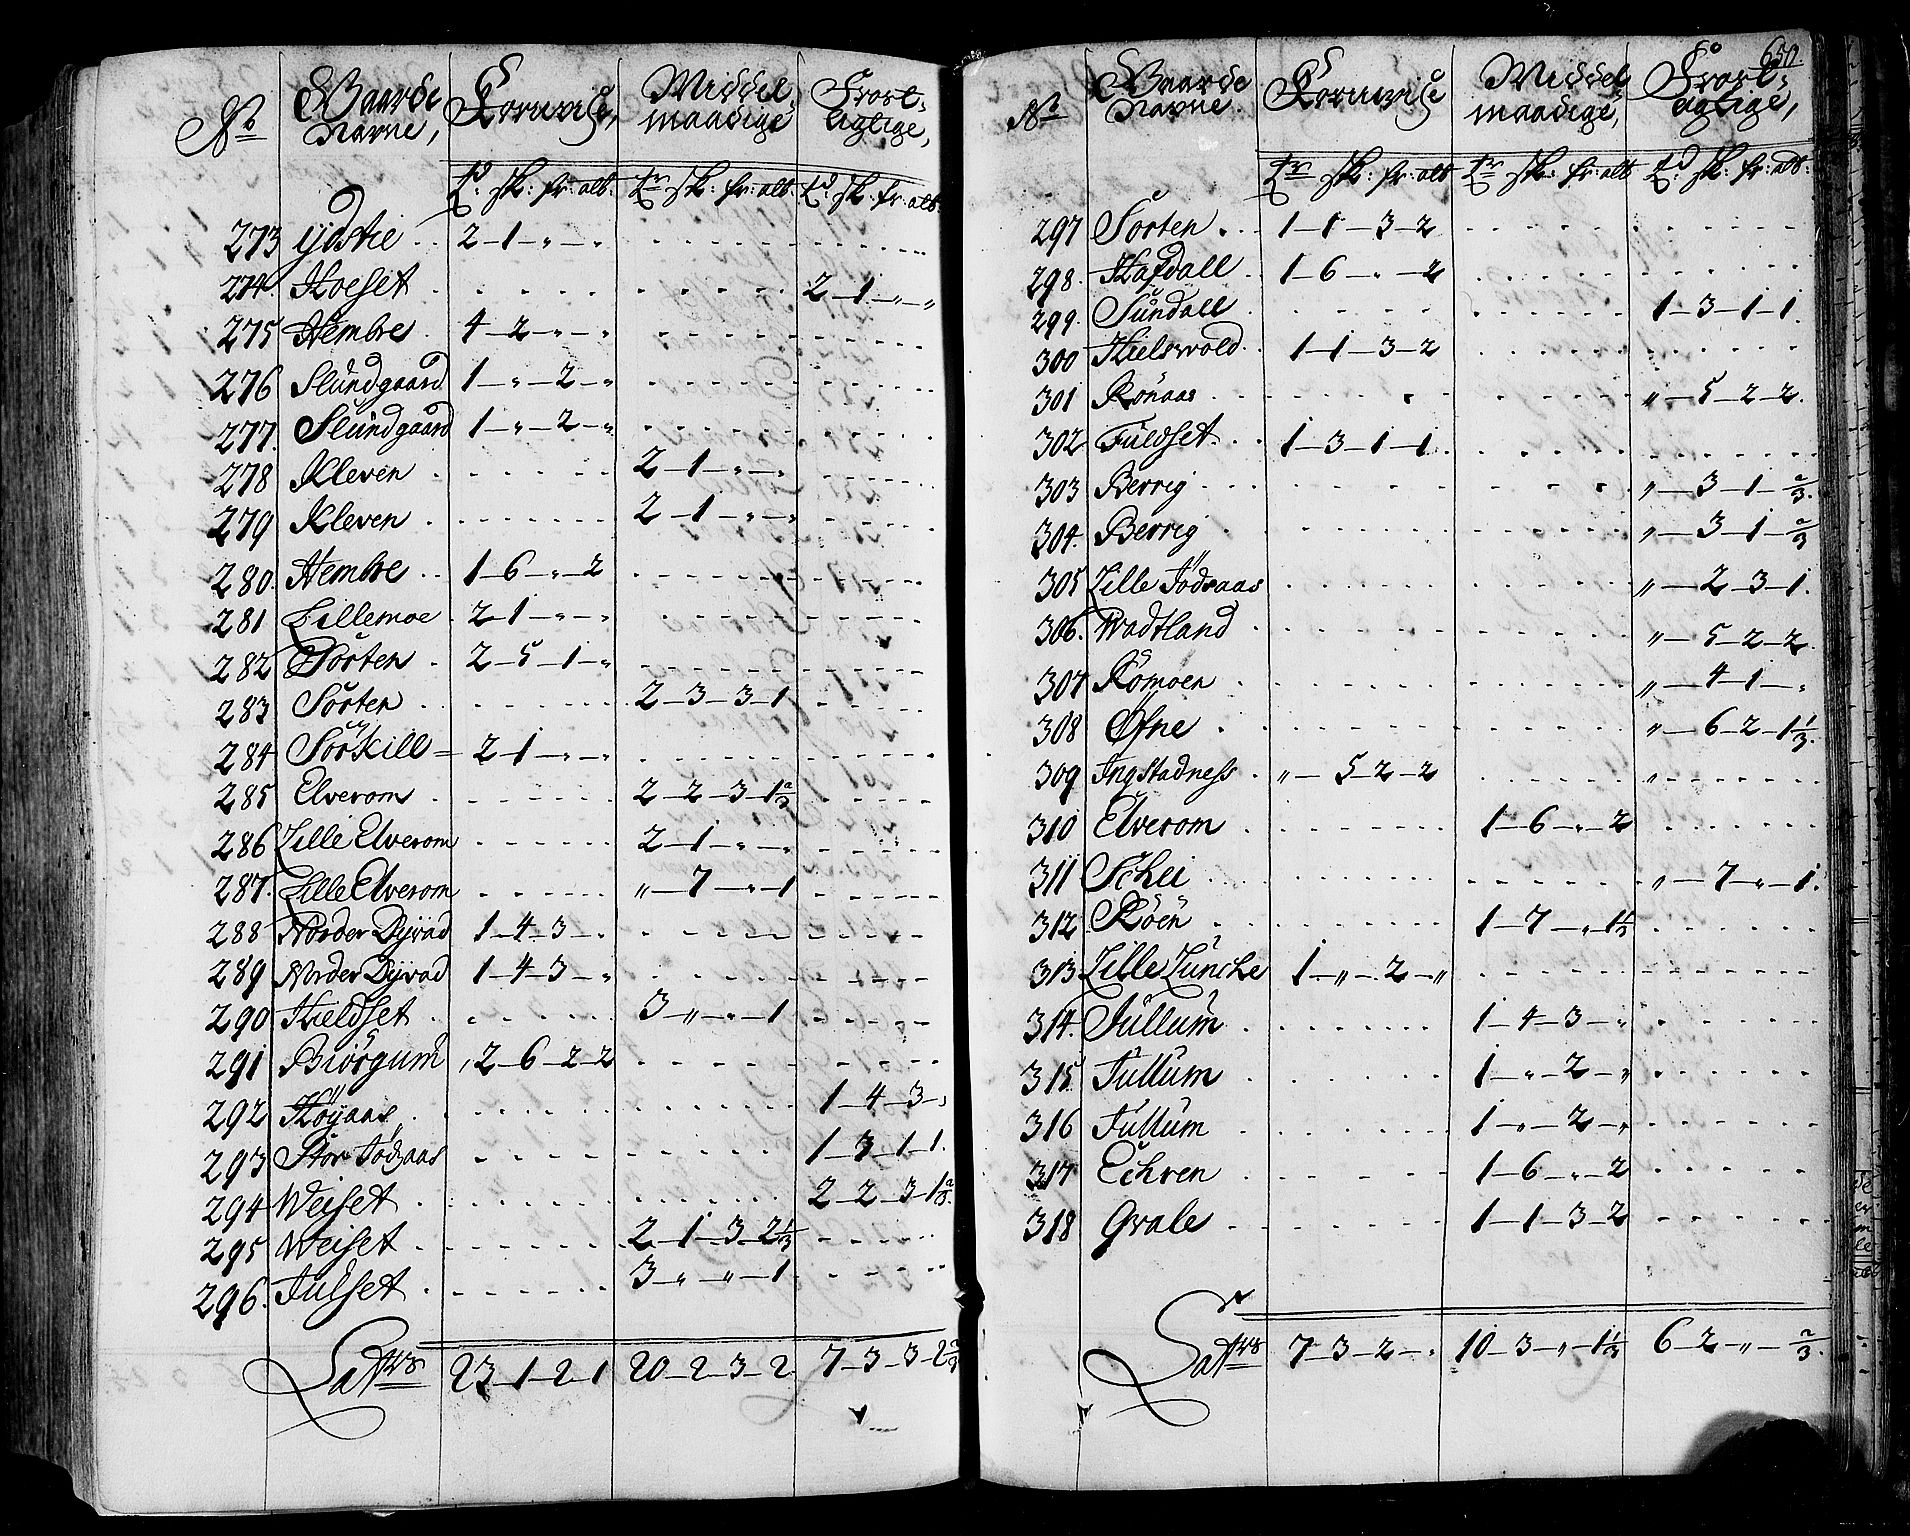 No Gaarde Navne, Kornvisse, Middelmaadige Frostagtige,
td: sk: fr: alb: tr sk: fr: alb. td sk: fr: alb.
273 Ydstie 2-1-"-"
274. Hoeset 2-1-"-"
275 Hembre 4-2-"-"
276 Slundgaard 1-"-2-"
277. Slundgaard 1-"-2-"
278 Kleven 2-1-"-"
279 Kleven 2-1-"-"
280. Hembre 1-6-"-2
281 Lillemoe 2-1-"-"
282 Sörten 2-5-1-"
283 Sörten 2-3-3-1
284 Sörkill 2-1-"-"
285 Elverom 2-2-3-1 2/3
286 Lille Elverom 2-1-"-"
287. Lille Elverom "-7-"-1
288 Norder Dyvad 1-4-3-"
289 Norder Dyvad 1-4-3-"
290 Kieldset 3-"-"-1
291 Biörgum 2-6-2-2
292 Höyaas 1-4-3-"
293 Stor Födsaas 1-3-1-1.
294 Weiset 2-2-3-1 2/3.
295 Weiset 2-1-3-2 1/3
296. Julset 3-"-"-1
Lattus 23-1-2-1 20-2-3-2 7-3-3-2 2/3
650.
No Gaarde Navne. Kornvisse Middelmaadige, Frostagtige,
tr sk: fr: alb tr sk: fr: alb td sk: fr: alb:
297 Sörten 1-1-3-2
298. Hafdall 1-6-"-2
299. Sundall 1-3-1-1.
300 Kielswold 1-1-3-2
301 Rönaas "-5-2-2.
302 Fuldset 1-3-1-1.
303 Berrig "-3-1-2/3.
304. Berrig "-3-1-2/3
305 Lille Födsaas "-2-3-1.
306. Wadtland "-5-2-2.
307 Römoen "-4-1-"
308 Öfne "-6-2-1 1/3.
309 Ingstadness "-5-2-2
310 Elverom 1-6-"-2
311 Schei "-7-"-1.
312 Röen 1-7-"-1 1/3
313 Lille Luncke 1-"-2-"
314. Fullum 1-4-3-"
315 Fullum 1-"-2-"
316 Fullum 1-"-2-"
317 Echren 1-6-"-2
318 Grale 1-1-3-2
Lattus 7-3-2-" 10-3-"-1 1/3 6-2-"-2/3.